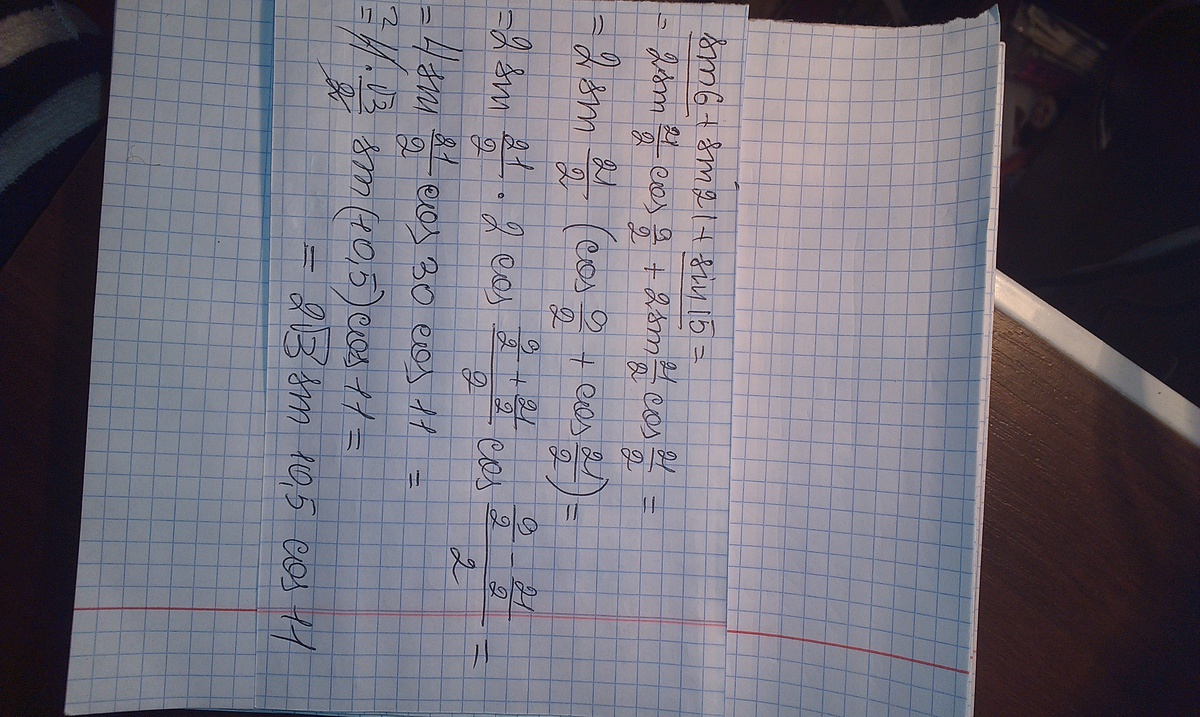 sin 6 + sin 21 + sin 15 =
= 2 sin 21/2 cos 9/2 + 2 sin 21/2 cos 21/2 =
= 2 sin 21/2 (cos 9/2 + cos 21/2) =
= 2 sin 21/2 · 2 cos (9/2 + 21/2)/2 cos (9/2 - 21/2)/2 =
= 4 sin 21/2 cos 30 cos 11 =
= 4 · √3/2 sin (10,5) cos 11 =
= 2√3 sin 10,5 cos 11